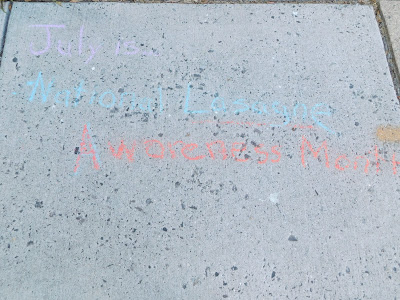 July is...
National Lasagne
Awareness Month